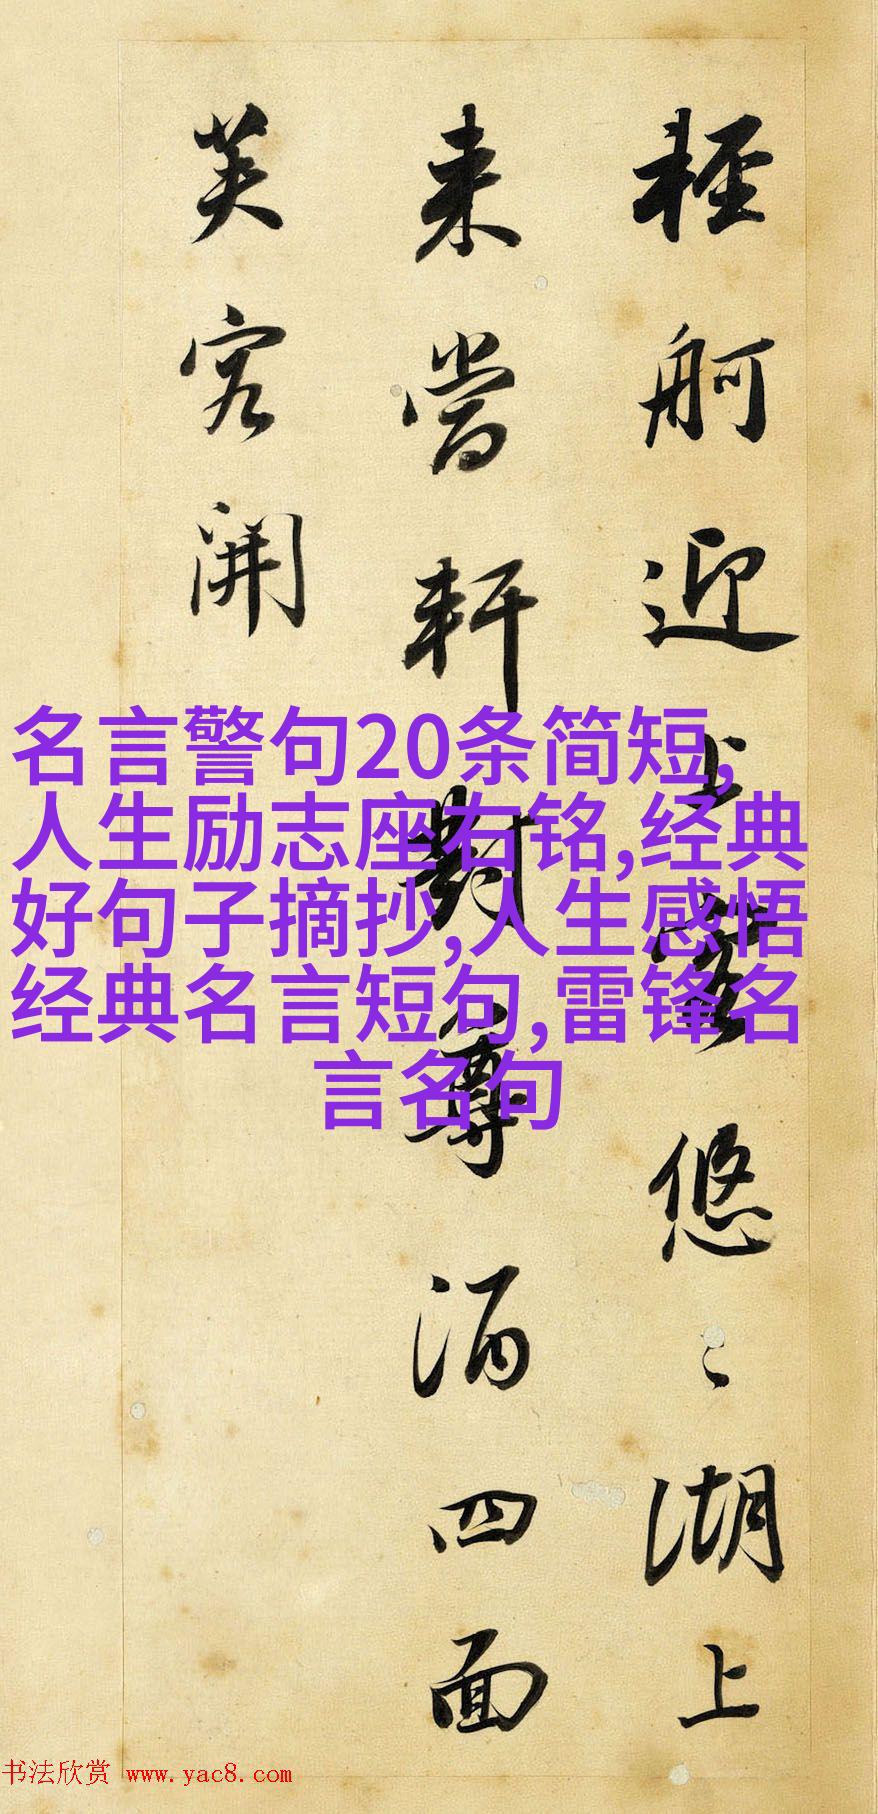 輕舸迎上客悠〻湖上
来當軒對尊酒四面
芙容開
名言警句20条简短,
人生励志座右铭,经典
好句子摘抄,人生感悟
经典名言短句,雷锋名
言名句
书法欣赏 www.yac8.com